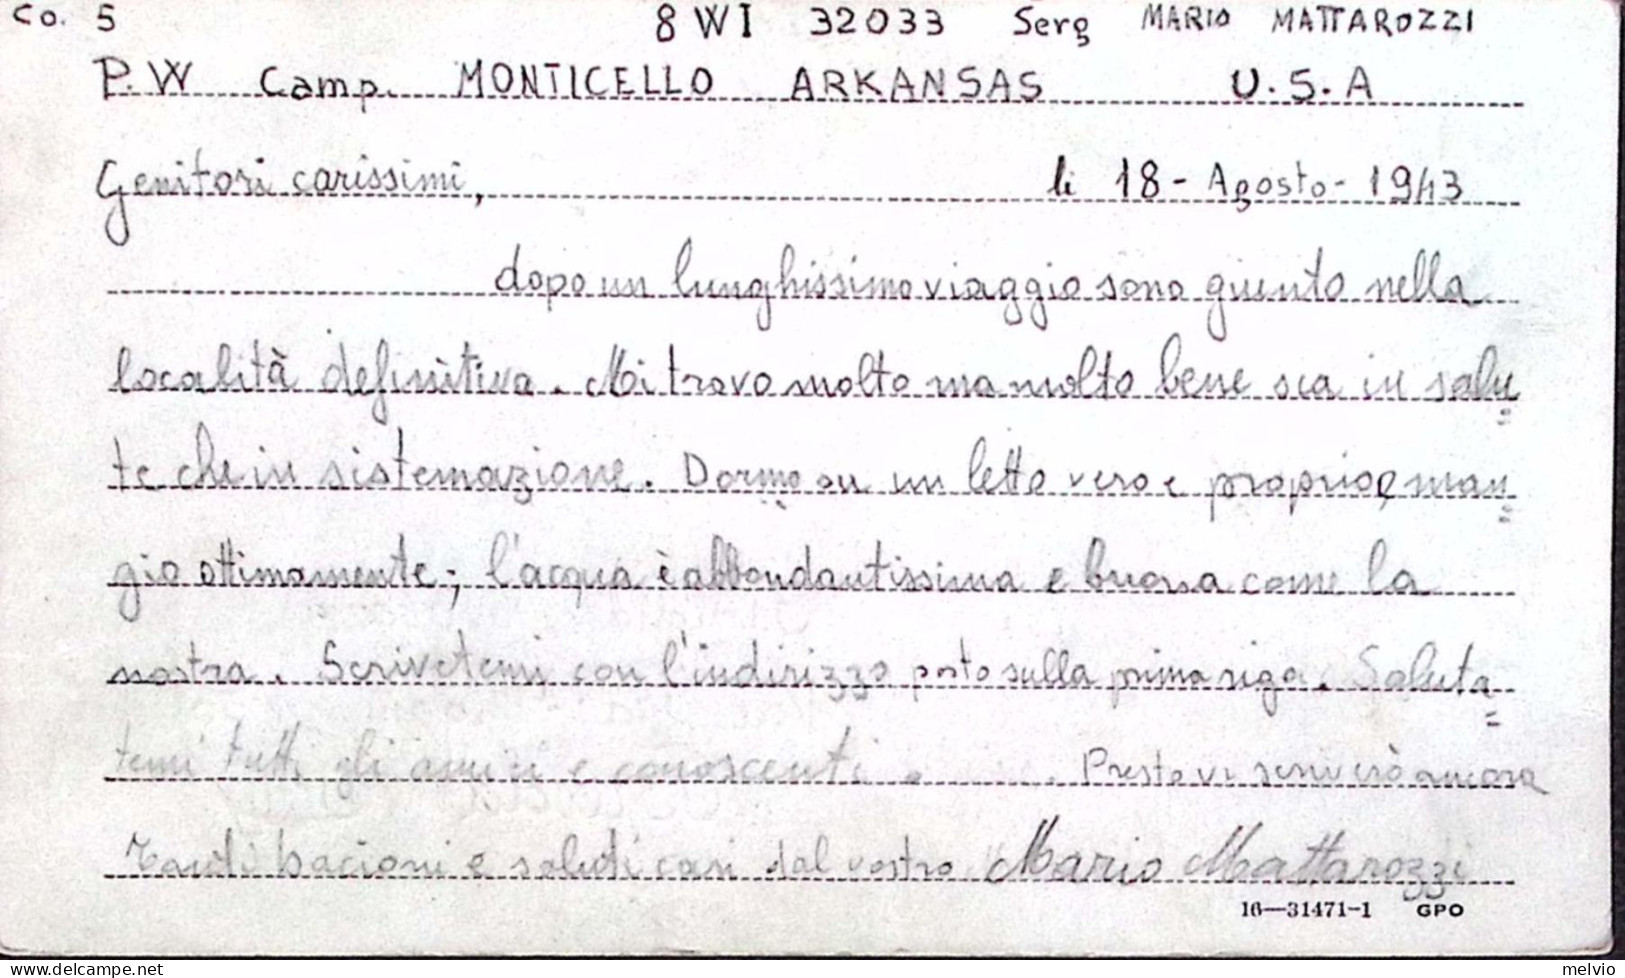 Co. 5 8 WI 32033 Serg MARIO MATTAROZZI
P. W Camp. MONTICELLO ARKANSAS U.S.A
Genitori carissimi, li 18 - Agosto - 1943
dopo un lunghissimo viaggio sono giunto nella
località definitiva. Mi trovo molto ma molto bene sia in salu=
te che in sistemazione. Dormo su un letto vero e proprio e man=
gio ottimamente; l'acqua è abbondantissima e buona come la
nostra. Scrivetemi con l'indirizzo posto sulla prima riga. Saluta=
temi tutti gli amici e conoscenti. Presto vi scriverò ancora
Tanti bacioni e saluti cari dal vostro Mario Mattarozzi
16—31471-1 GPO
melvio